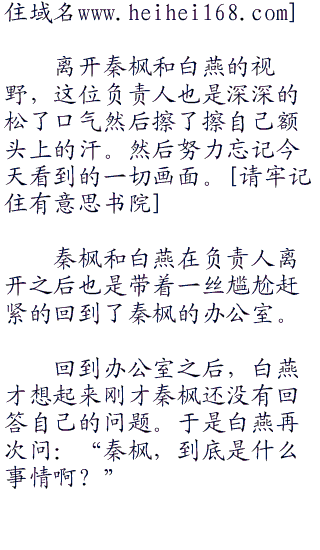 住域名www.heihei168.com]
离开秦枫和白燕的视
野，这位负责人也是深深的
松了口气然后擦了擦自己额
头上的汗。然后努力忘记今
天看到的一切画面。[请牢记
住有意思书院]
秦枫和白燕在负责人离
开之后也是带着一丝尴尬赶
紧的回到了秦枫的办公室。
回到办公室之后，白燕
才想起来刚才秦枫还没有回
答自己的问题。于是白燕再
次问：“秦枫，到底是什么
事情啊？”